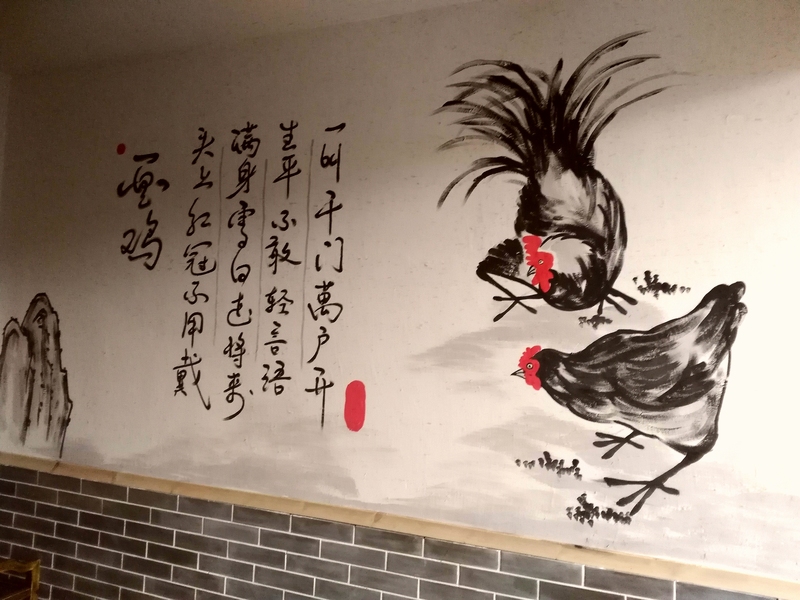 画鸡
头上红冠不用戴
满身雪白走将来
生平不敢轻言语
一叫千门萬户开